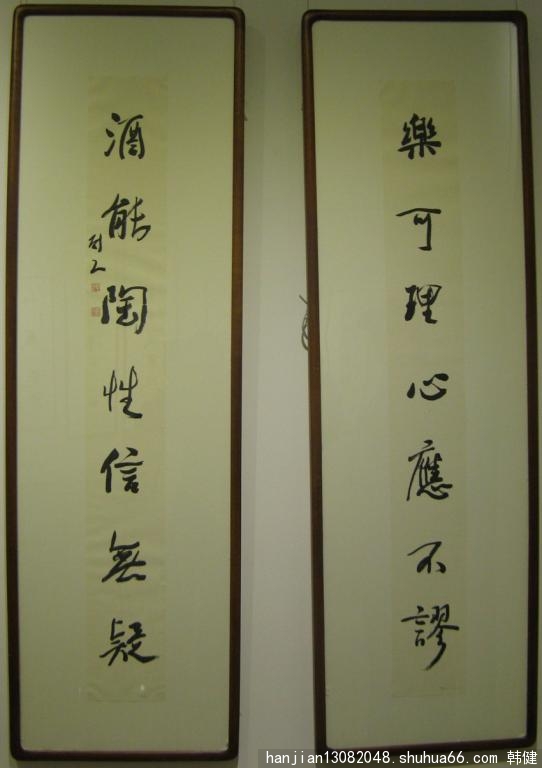 樂可理心應不謬
酒能陶性信無疑
hanjian13082048.shuhua66.com 韩健